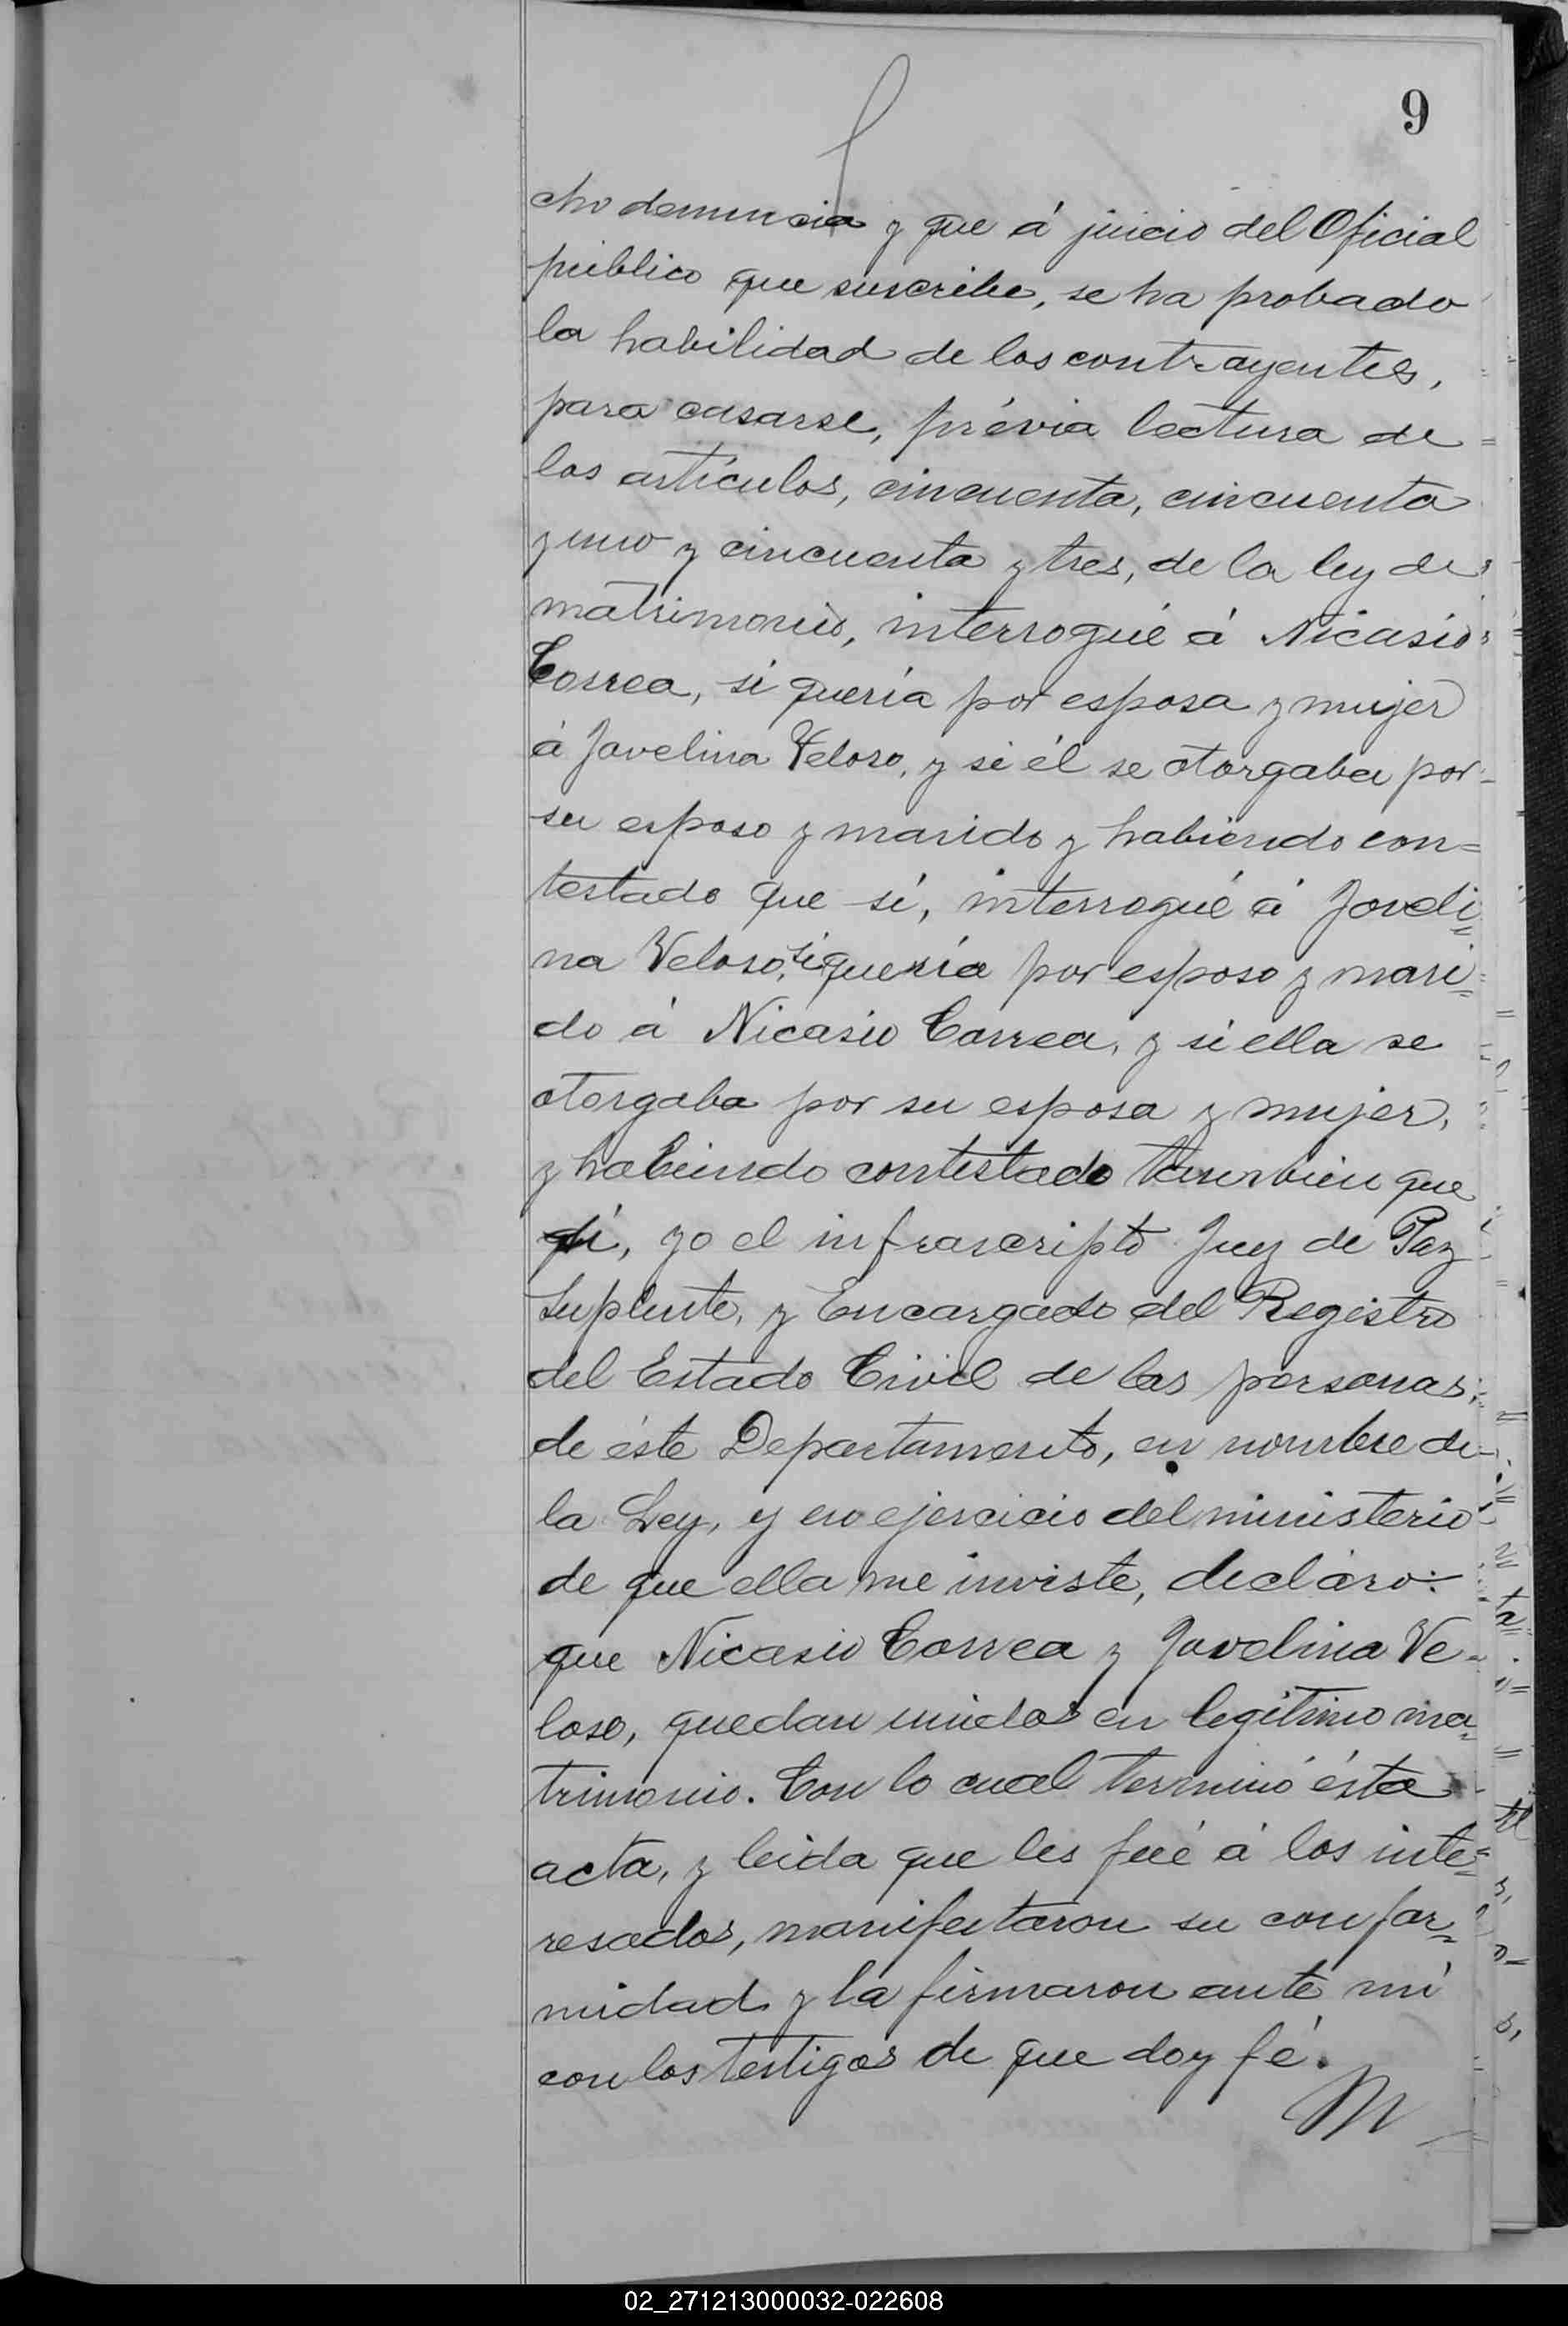 9
cho denuncia y que á juicio del Oficial
público que suscribe, se ha probado
la habilidad de los contrayentes,
para casarse, prévia lectura de
los artículos, cincuenta, cincuenta
y uno y cincuenta y tres, de la ley de
matrimonio, interrogué á Nicasio
Correa, si quería por esposa y mujer
á Jovelina Veloso, y si él se otorgaba por
su esposo y marido y habiendo con=
testado que sí, interrogué á Joveli=
na Veloso, si quería por esposo y mari=
do á Nicasio Correa, y si ella se
otorgaba por su esposa y mujer,
y habiendo contestado tambien que
sí, yo el infrascripto Juez de Paz
Suplente, y Encargado del Registro
del Estado Civil de las personas,
de éste Departamento, en nombre de
la Ley, y en ejercicio del ministerio
de que ella me inviste, decláro:
que Nicasio Correa y Jovelina Ve-
loso, quedan unidos en legítimo ma=
trimonio. Con lo cual terminó ésta
acta, y leida que les fué á los inte=
resados, manifestaron su confor=
midad y la firmaron ante mí
con los testigos de que doy fé.
02_271213000032-022608